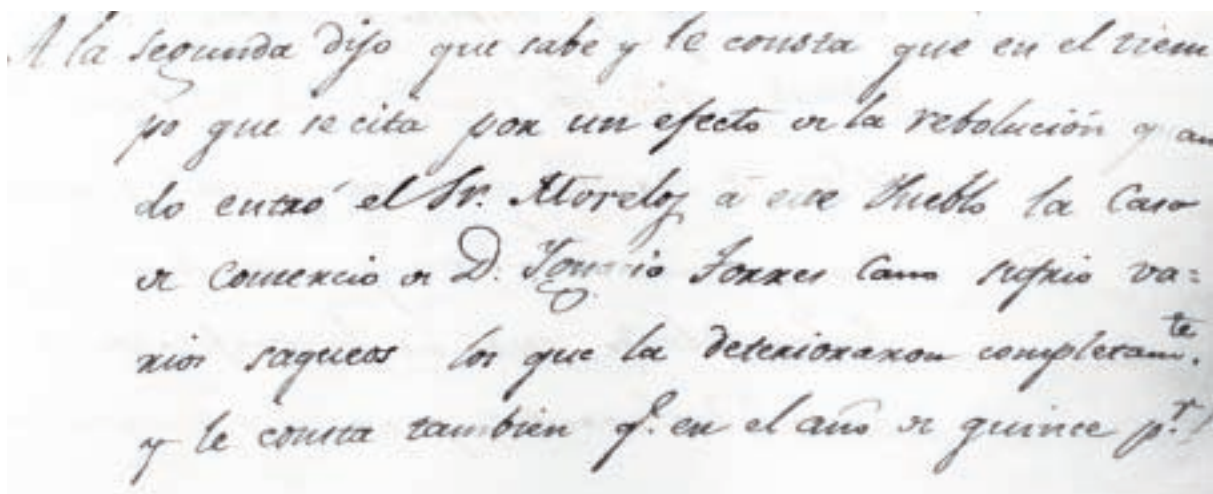 A la segunda dijo que sabe y le consta que en el tiem
po que se cita por un efecto de la rebolución quan
do entró el Sr. Morelos a este Pueblo la Casa
de Comercio de D. Ignacio Torres Cano sufrio va=
rios saqueos los que la deterioraron completamte.
y le consta tambien q.e en el año de quince p.r